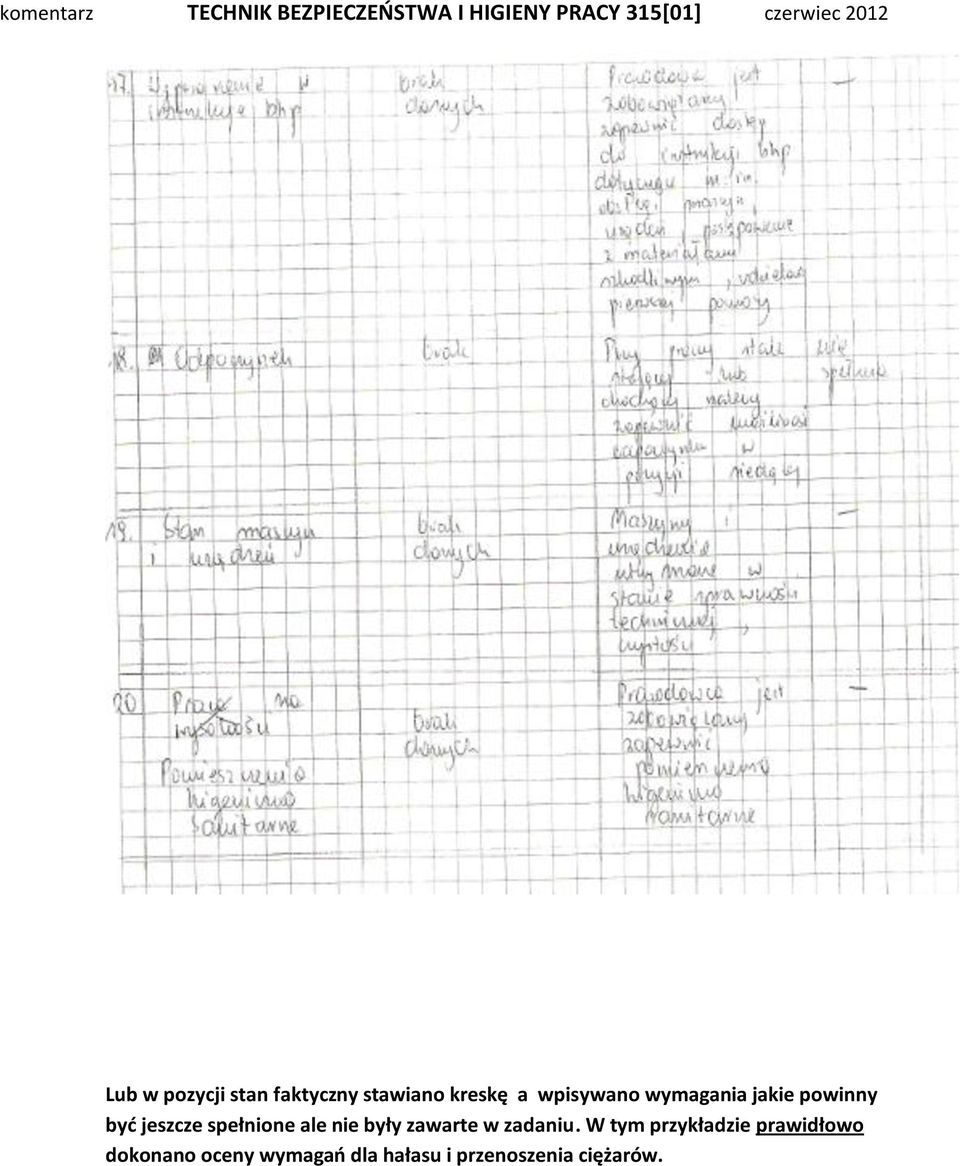 komentarz TECHNIK BEZPIECZEŃSTWA I HIGIENY PRACY 315[01] czerwiec 2012
17. w brak Pracodawca jest –
instrukcje bhp danych zobowiązany
zapewnić dostęp
do instrukcji bhp
m.in.
maszyn,
urządzeń, postępowanie
z materiałami
, udzielaniu
pierwszej pomocy
18. Odpoczynek brak Przy pracy stale nie
stojącej lub spełnia
chodzącej należy
zapewnić możliwość
w
pozycji siedzącej
19. Stan maszyn brak Maszyny i –
i urządzeń danych urządzenia
utrzymane w
stanie sprawności
technicznej,
czystości
20 Praca na Pracodawca jest –
wysokości brak zobowiązany
danych zapewnić
Pomieszczenia
higieniczno higieniczno
sanitarne sanitarne
Lub w pozycji stan faktyczny stawiano kreskę a wpisywano wymagania jakie powinny
być jeszcze spełnione ale nie były zawarte w zadaniu. W tym przykładzie prawidłowo
dokonano oceny wymagań dla hałasu i przenoszenia ciężarów.